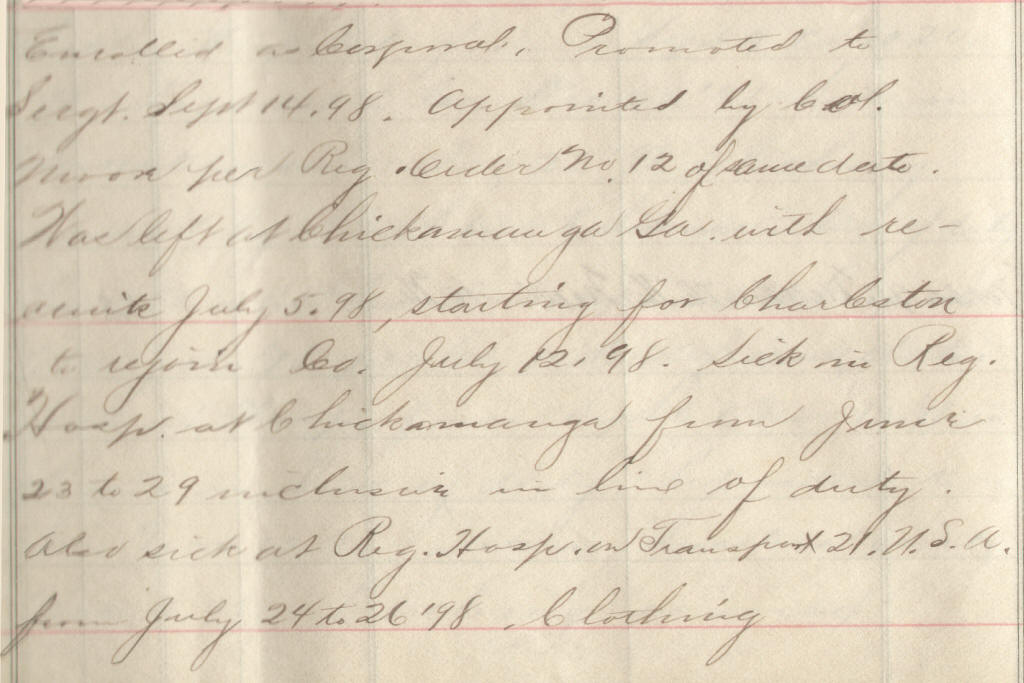 Enrolled as Corporal. Promoted to
Sergt. Sept 14. 98. Appointed by Col.
Moon per Reg. Order No. 12 of same date.
Was left at Chickamauga Ga. with re-
cruits July 5. 98, starting for Charleston
to rejoin Co. July 12. 98. Sick in Reg.
Hosp. at Chickamauga from June
23 to 29 inclusive in line of duty.
Also sick at Reg. Hosp. on Transport 21. U.S.A.
from July 24 to 26 '98. Clothing